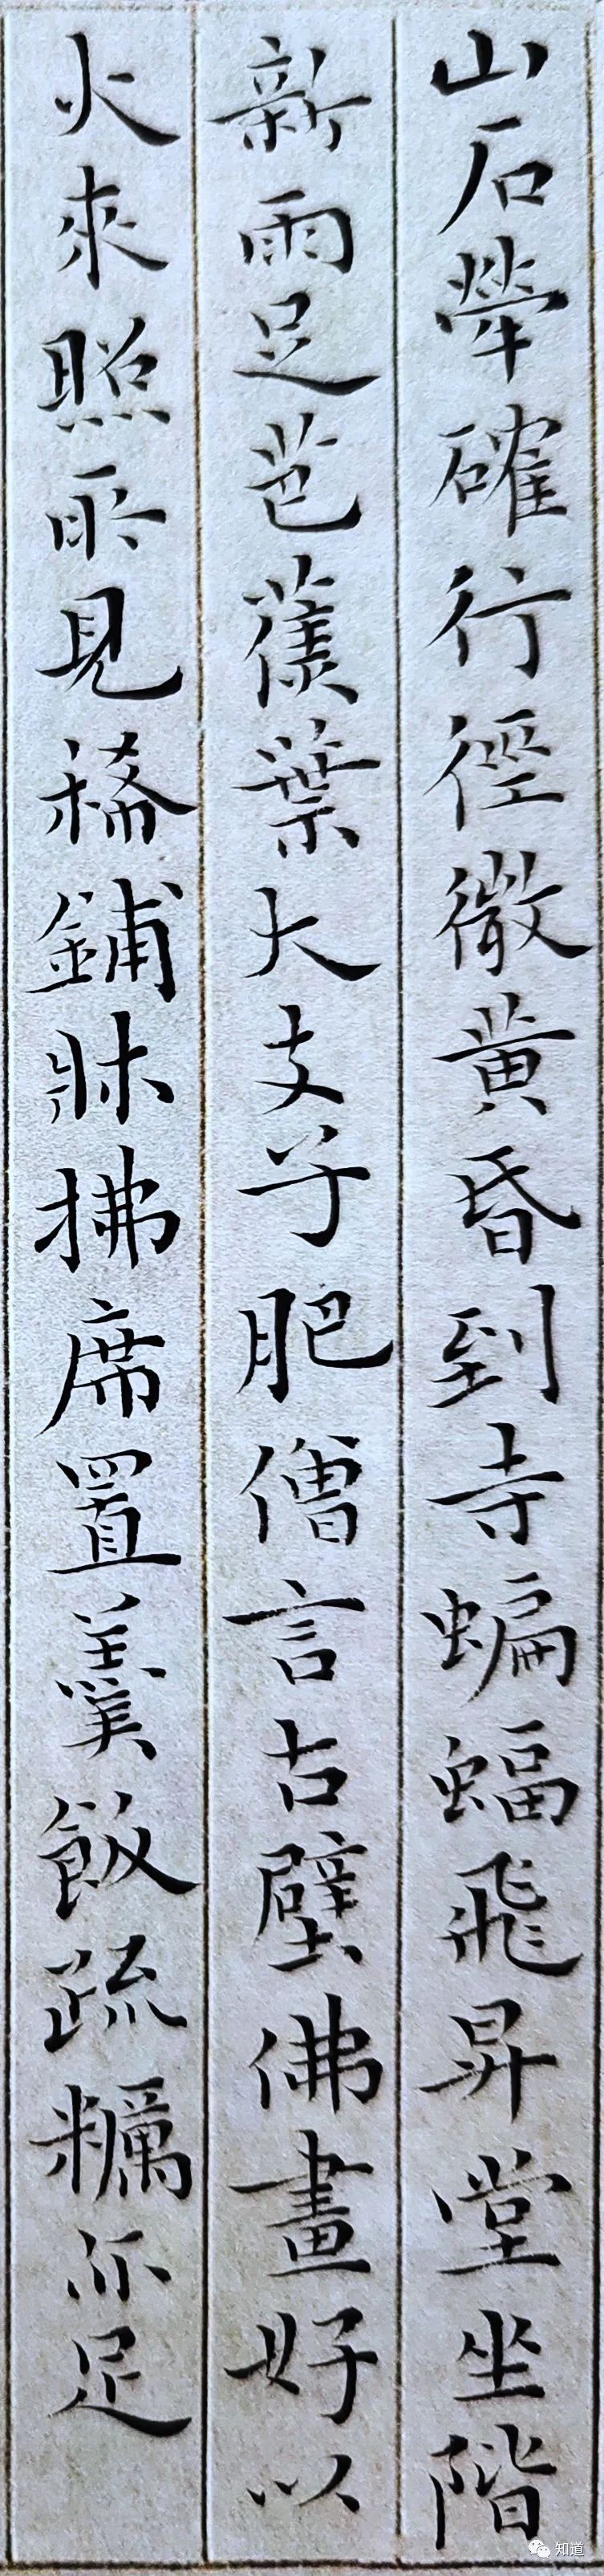 山石犖確行徑微黃昏到寺蝙蝠飛昇堂坐階
新雨足芭蕉葉大支子肥僧言古壁佛畫好以
火來照所見稀鋪牀拂席置羹飯疏糲亦足
知道